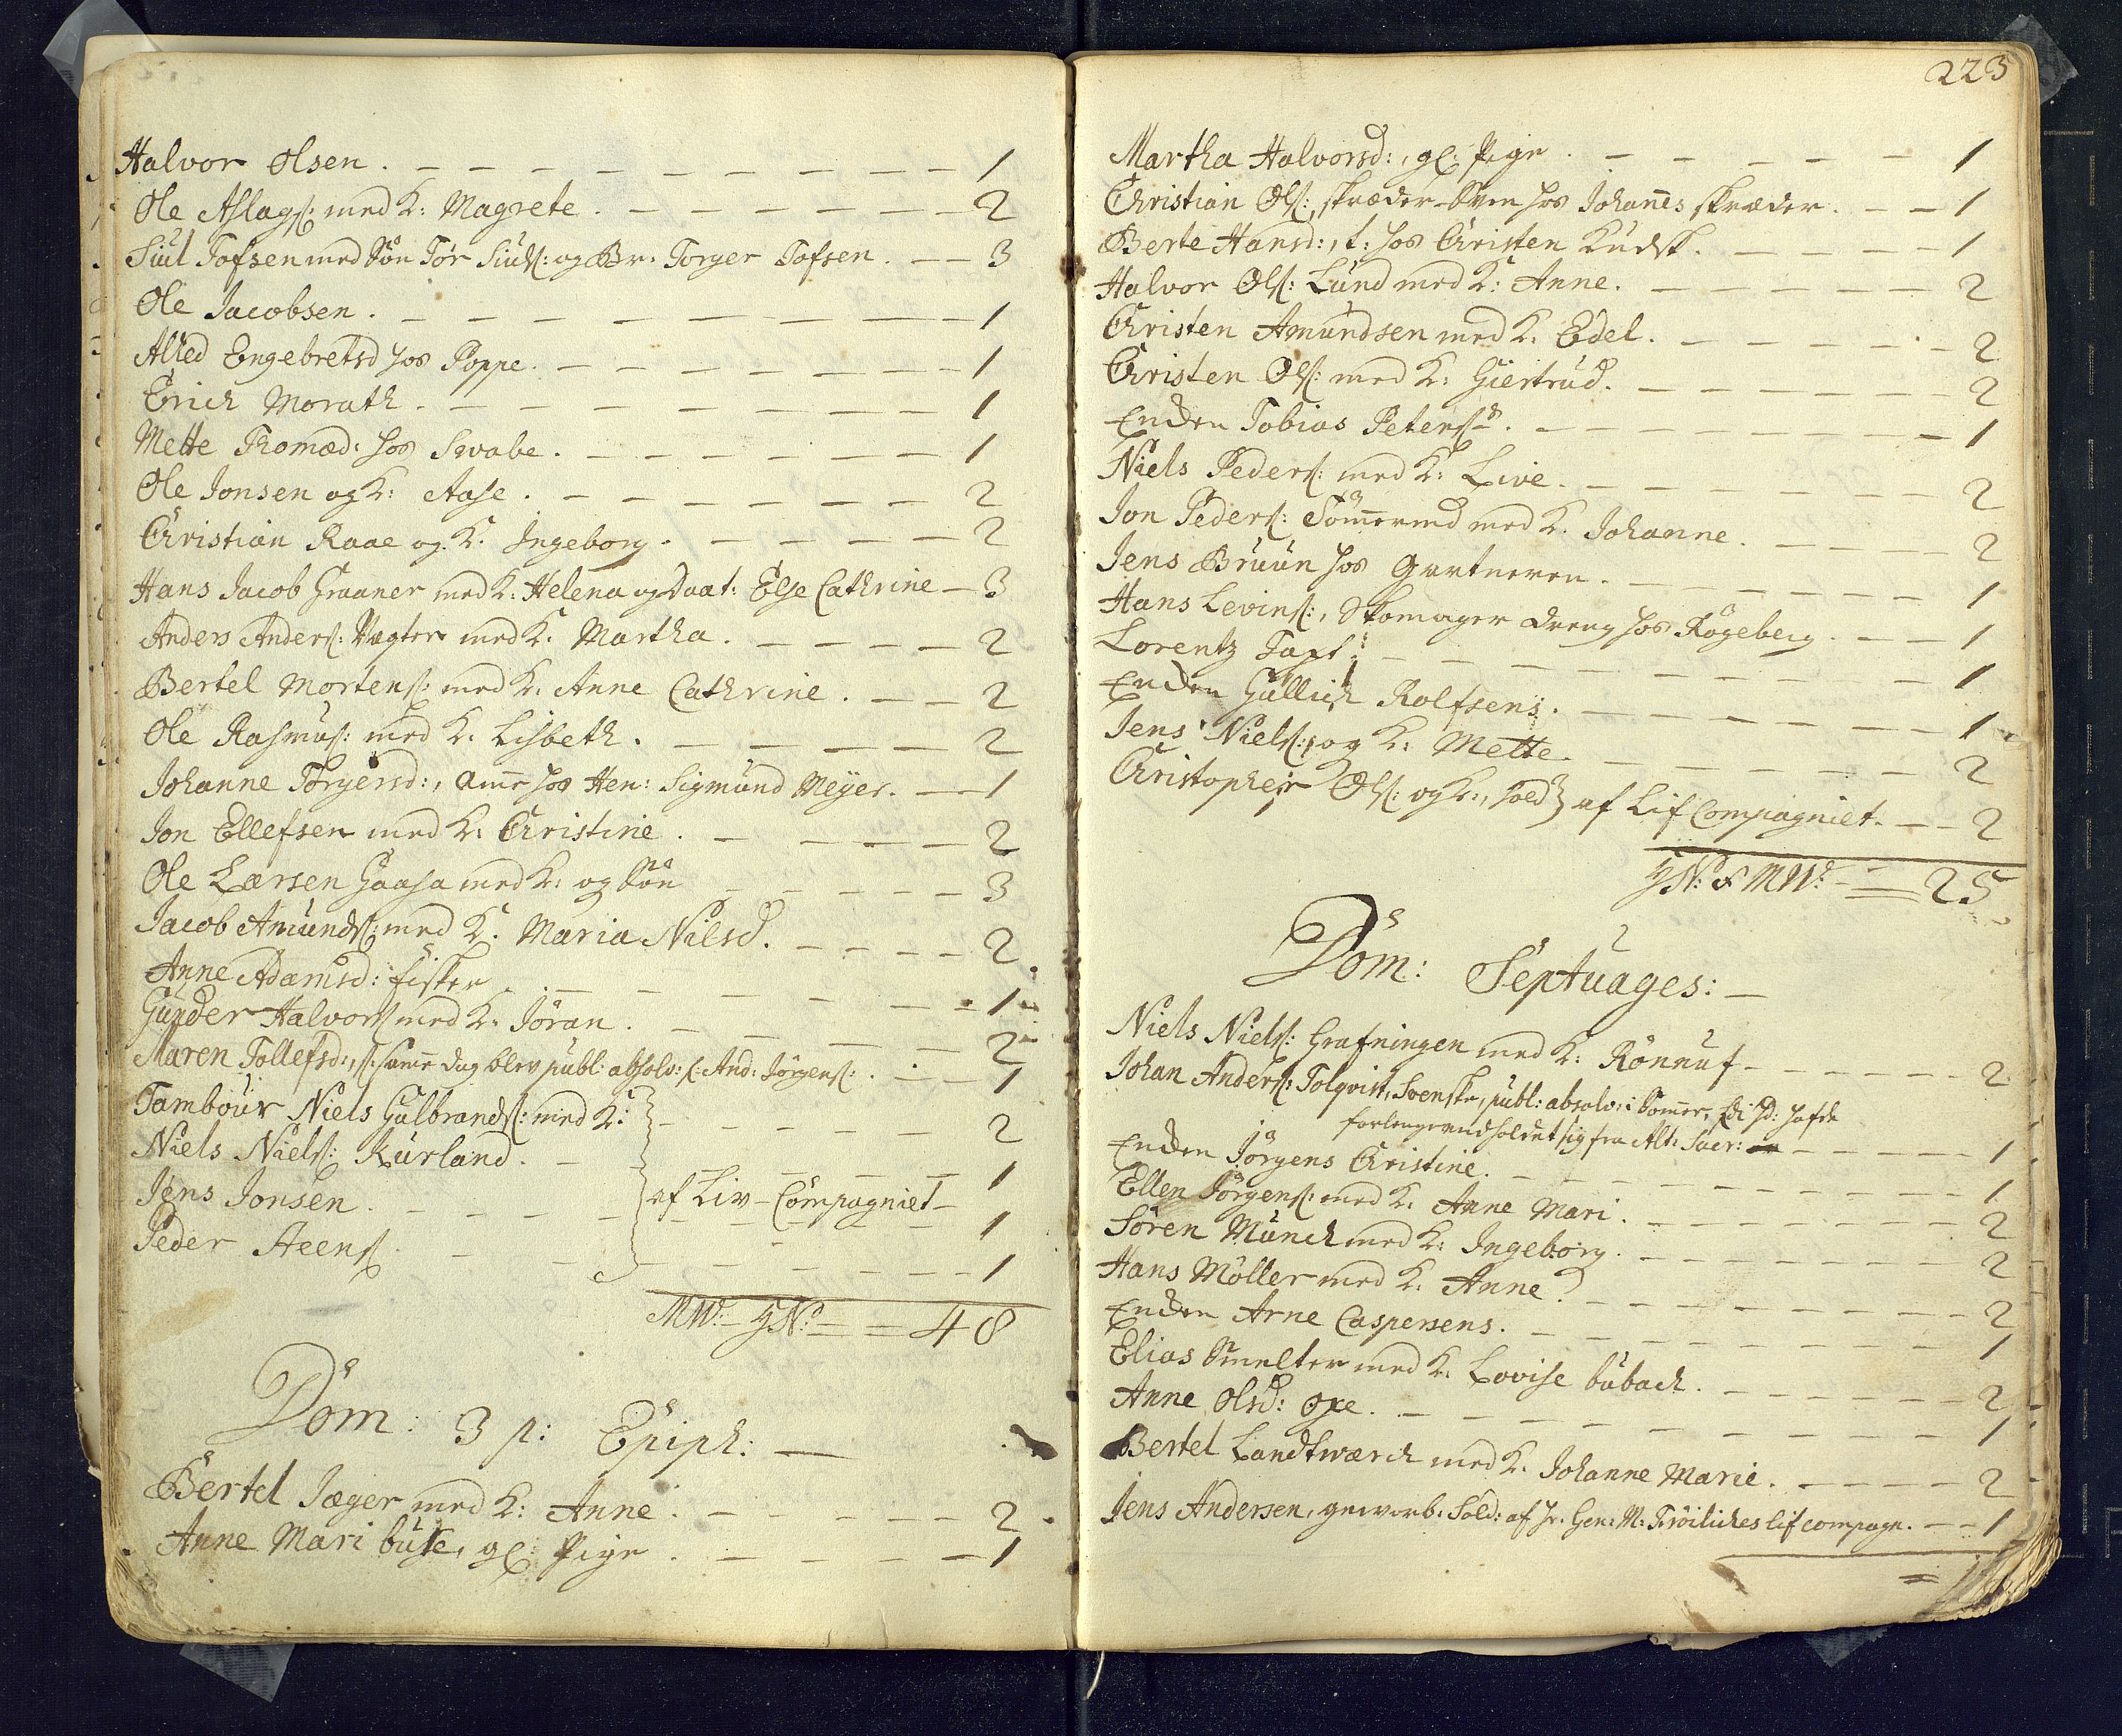 Halvor Olsen. — 1
Ole Aslags: med K: Magrete. — 2
Siul Tofsen med Søn Tør Siuls: og Br. Torger Tofsen. — 3
Ole Jacobsen. — 1
Alhed Engebretsd hos Poppe. — 1
Erich Morath. — 1
Mette Thomæd: hos Swabe. — 1
Ole Jonsen og K: Aase. — 2
Christian Raae og K. Ingeborg. — 2
Hans Jacob Graaner med K: Helena og Daat: Else Cathrine — 3
Anders Anders: Vægter med K. Martha. — 2
Bertel Mortens: med K. Anne Cathrine. — 2
Ole Rasmus: med K. Lisbeth. — 2
Johanne Torgersd:, Amme hos Hen: Sigmund Meyer. — 1
Jon Ellefsen med K: Christine. — 2
Ole Larsen Gaasa med K: og Søn — 3
Jacob Amunds: med K. Maria Nilsd. — 2
Anne Adamsd: fisker — 1
Gunder Halvors: med K. Jöran. — 2
Maren Tollefsd:, s: samme dag blev publ: absolv: s: And: Jörgens: — 1
Tambour Niels Gulbrands: med K: — 2
Niels Niels: Kurland. — 1
Jens Jonsen. — af Liv-Compagniet — 1
Peder Steens: — 1
MW: — 48
Dom: 3 p: Epiph: —
Bertel Jæger med K: Anne. — 2
Anne Mari buse, gl: Pige. — 1
223
Martha Halvorsd:, gl: Pige. — 1
Christian Ols:, skræder-Sven hos Johannes skræder. — 1
Berte Hansd:, t: hos Christen Kudsk. — 1
Halvor Ols: Lund med K: Anne. — 2
Christen Amundsen med K. Edel. — 2
Christen Ols: med K: Giertrud. — 2
Enken Tobias Peters: — 1
Niels Peders: med K: Live. — 2
Jon Peders: Sömmerud med K. Johanne. — 2
Jens Bruun hos Gartneren. — 1
Hans Levins:, Skomager dreng hos Rögeberg. — 1
Lorentz Taxt: — 1
Enken Gullich Rolfsens. — 1
Jens Niels: og K: Mette. — 2
Christopher Ols: og K:, Sold: af Lif Compagniet. — 2
MW: — 25
Dom: Septuages: —
Niels Niels: Grafningen med K: Rönnuf — 2
Johan Anders: Tolqvist, Svenske, publ: absolv: i Sommer,
forlenge undholdet sig fra Alt: Sacr: — 1
Enken Jörgens Christine. — 1
Ellen Jörgens: med K. Anne Mari. — 2
Sören Munch med K: Ingeborg. — 2
Hans Möller med K. Anne. — 2
Enken Arne Caspersens. — 1
Elias Smelter med K. Lovise bubach. — 2
Anne Olsd: Oxe. — 1
Bertel Landtwærch med K. Johanne Marie. — 2
Jens Andersen, gevorb: Sold: af Hr. Gen: M: Fröiliches lif compagn. — 1